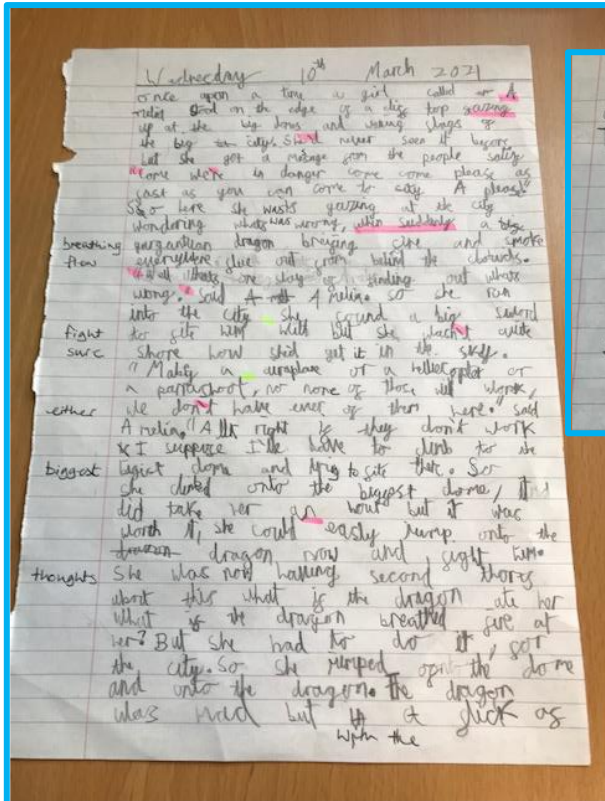 Wednesday 10th March 2021
once upon a time a girl called A
relin stood on the edge of a clif top gazing
up at the big domes and waving flags of
the big city. She'd never seen it before
but she got a message from the people saying
"come we're in danger come come please as
fast as you can come to A please"
So here she was gazing at the city
wondering whats was wrong, when suddenly a
breathing gargantuan dragon breying fire and smoke
flew everywhere flue out from behind the clowds.
whats one step is finding out whats
wrong." said A relin. so she ran
into the city she found a big sword
fight to fite him with but she wasn't quite
sure shore how she'd get it in the sky.
"Maby a aeroplane or a hellecopter or
a parrashoot, no none of those will work,
either we don't have ever of them here. said
A relin. "All right if they don't work
I suppose I'll have to climb to the
biggest bigist dome and try to fite there. So
she climed onto the biggest dome, it
did take her an hour but it was
worth it, she could easly jump onto the
dragon now and fight him.
thoughts She was now having second thorts
about this what if the dragon ate her
what if the dragon breathed fire at
her? But she had to do it, for
the city. So she jumped off the dome
and onto the dragon. The dragon
was mad but a flick as
with the